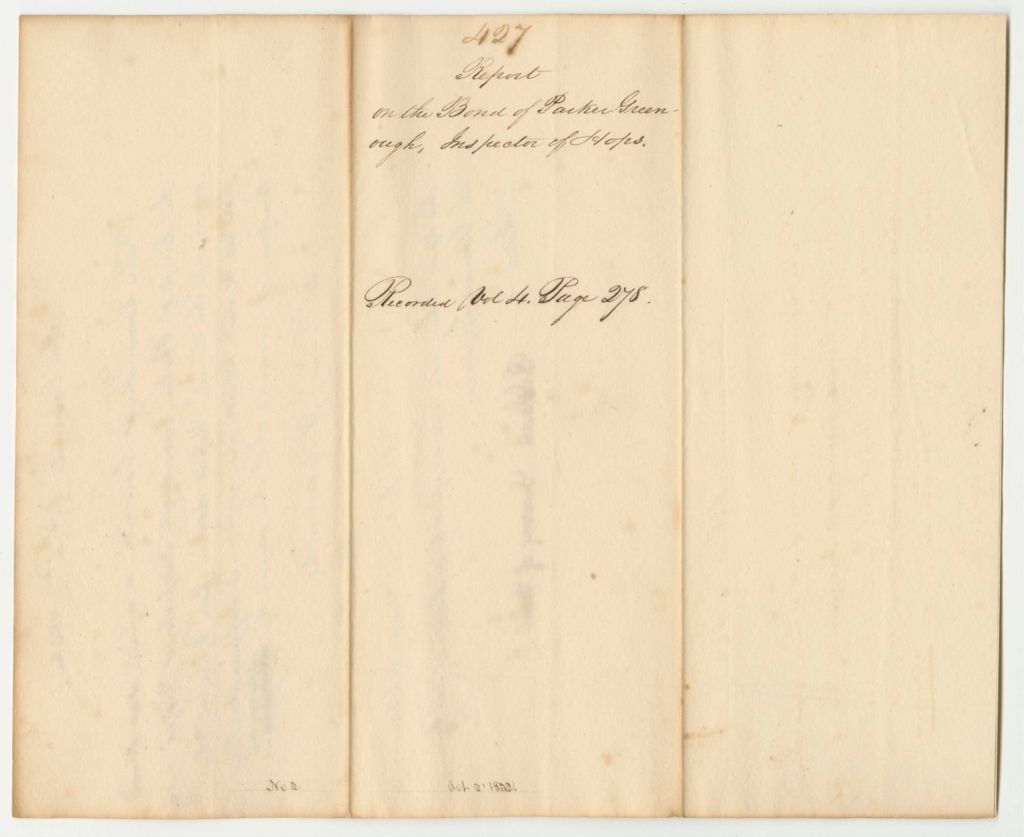 427
Report
on the Bond of Parker Green-
ough, Inspector of Hops.
Recorded Vol 4. Page 278.
No 2